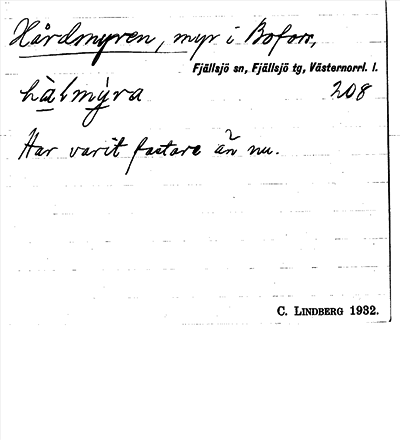 Hårdmyren, myr i Bofors,
Fjällsjö sn, Fjällsjö tg, Västernorrl. l.
hàlmýra 208
Har varit fastare än nu.
C. LINDBERG 1932.